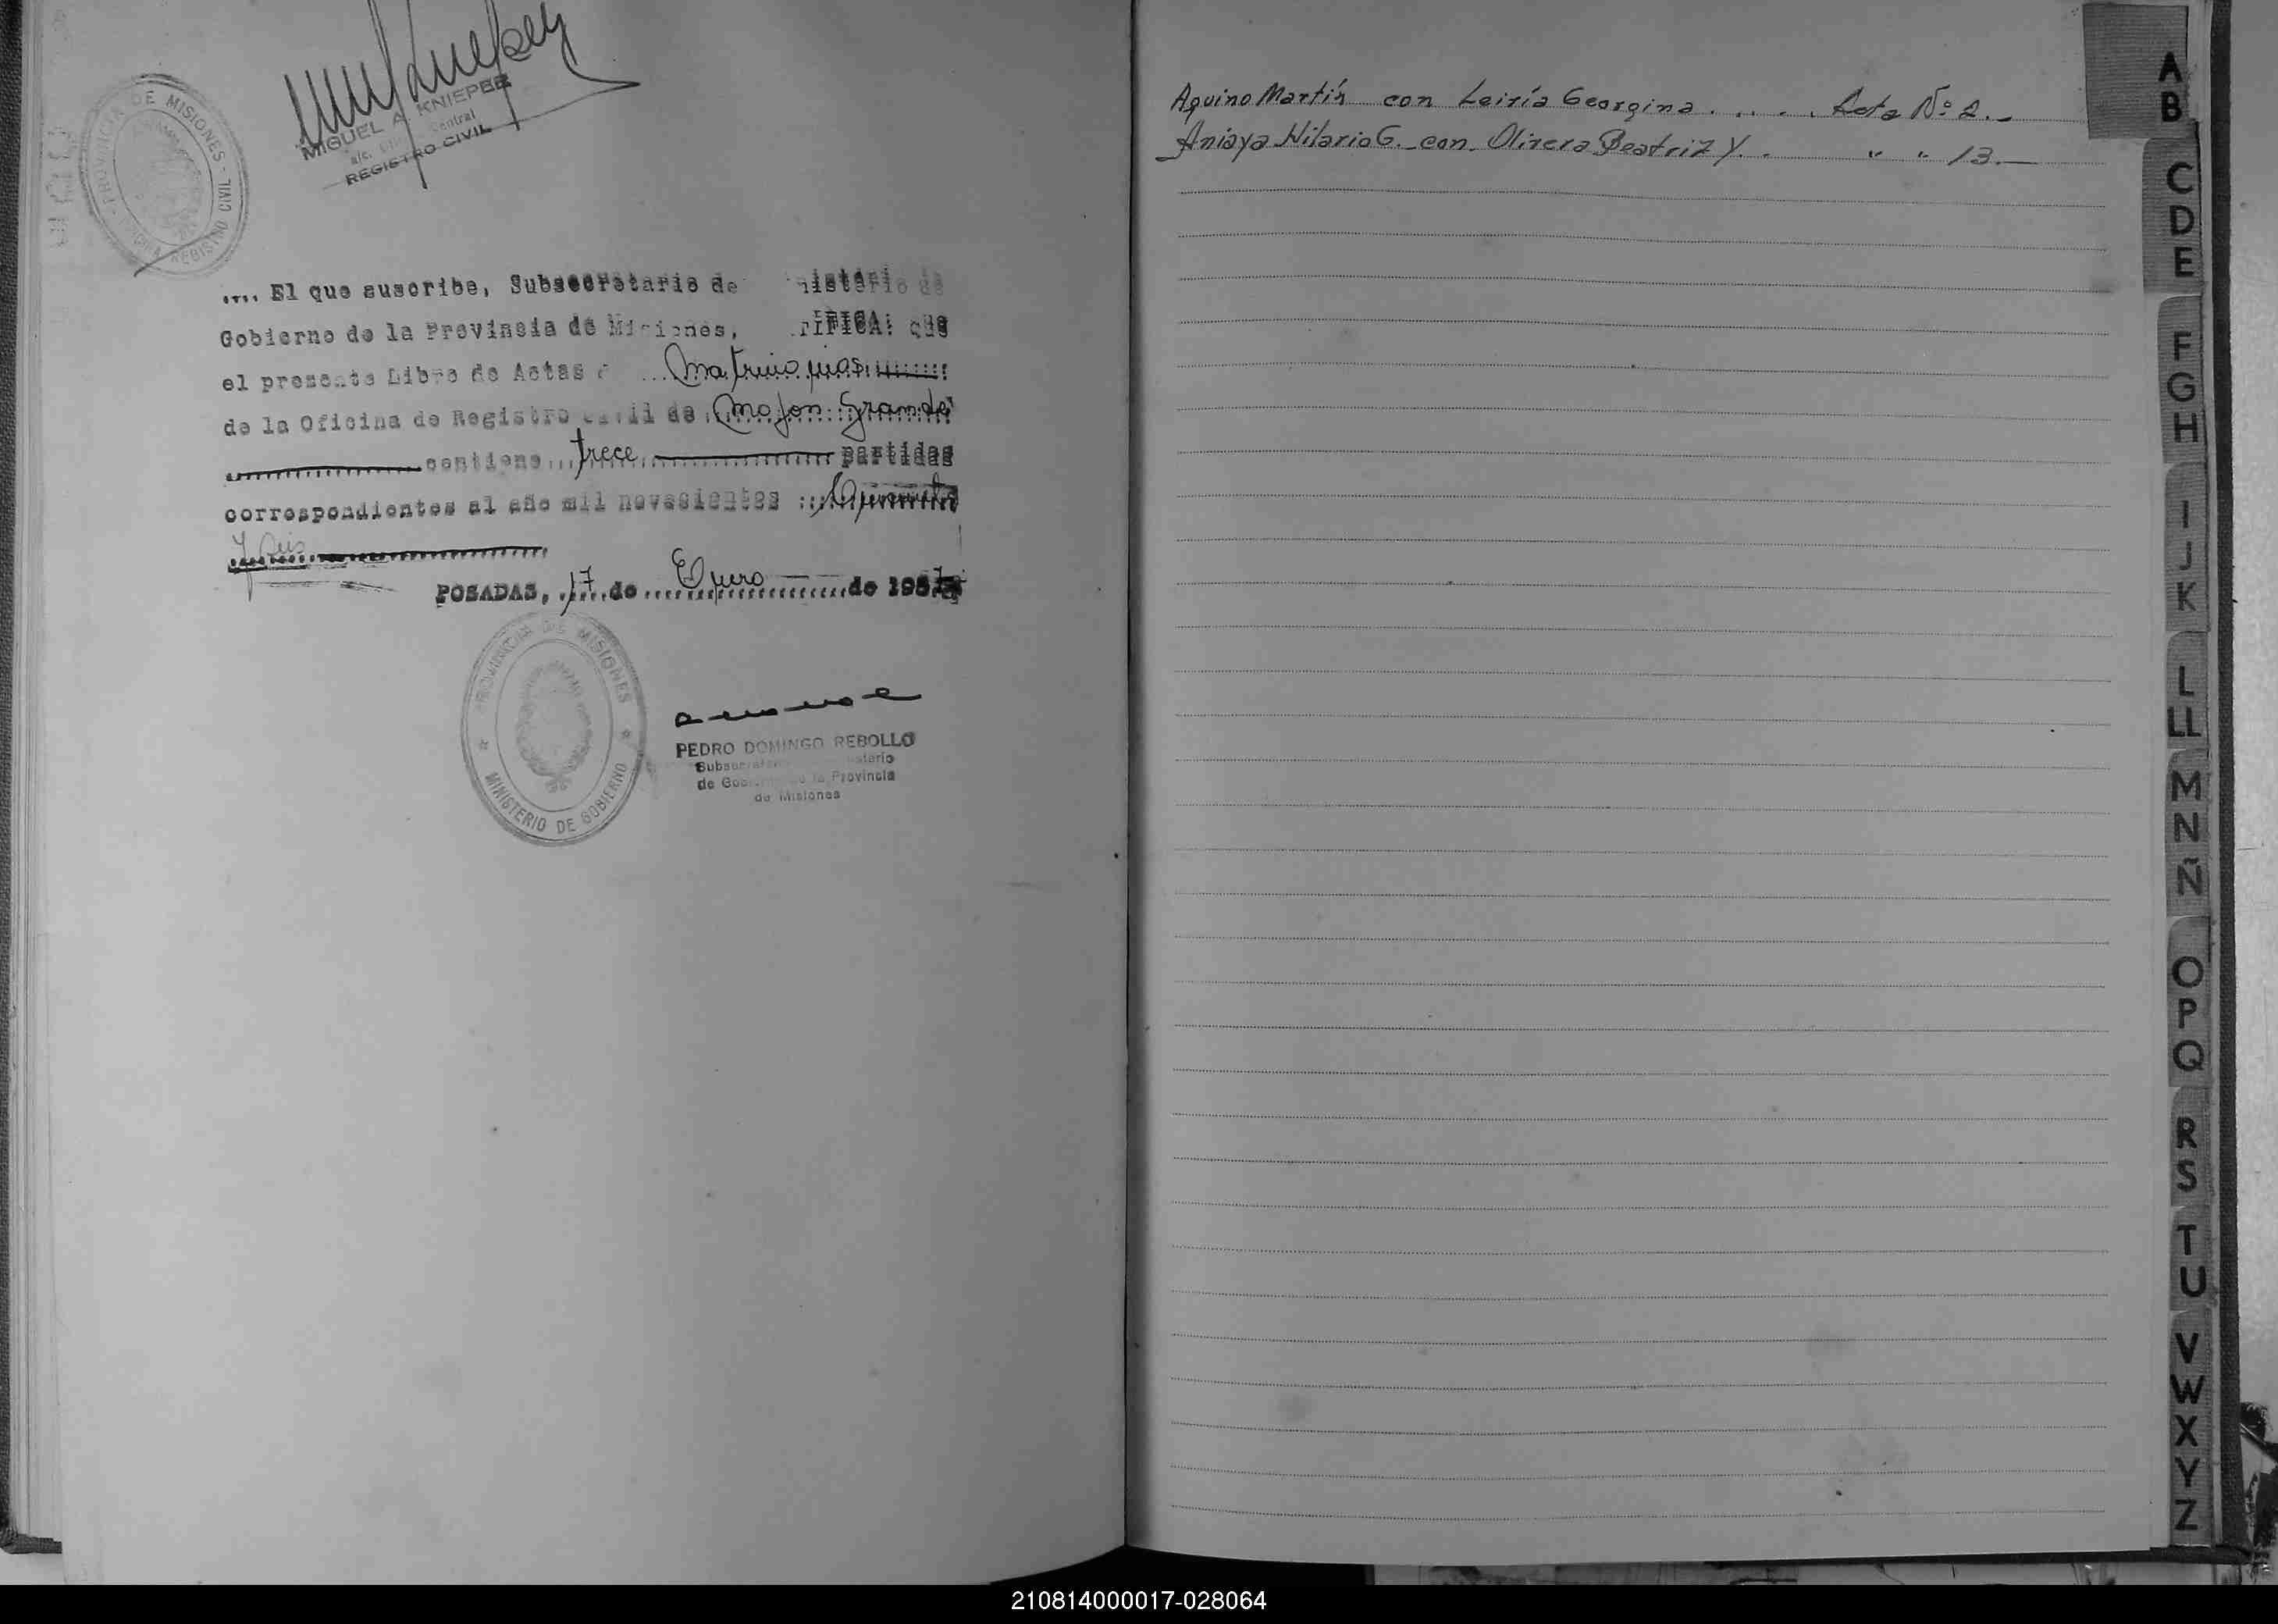 PROVINCIA DE MISIONES - REGISTRO CIVIL
MIGUEL A. KNIEPER
a/c. Central
REGISTRO CIVIL
.... El que suscribe, Subsecretario de
Gobierno de la Provincia de Misiones, que
el presente Libro de Actas ... Matrimonios
de la Oficina de Registro Civil de Mojon Grande
contiene... trece partidas
correspondientes al año mil novecientos
y seis
POSADAS, 17 de Enero de 195
PROVINCIA DE MISIONES
MINISTERIO DE GOBIERNO
PEDRO DOMINGO REBOLLO
de la Provincia
de Misiones
Aquino Martín con Leiría Georgina . . . . . Acta Nº 2.-
Aniaya Hilario G. con Olivera Beatriz Y. . " " 13.-
A
B
C
D
E
F
G
H
I
J
K
L
LL
M
N
Ñ
O
P
Q
R
S
T
U
V
W
X
Y
Z
210814000017-028064